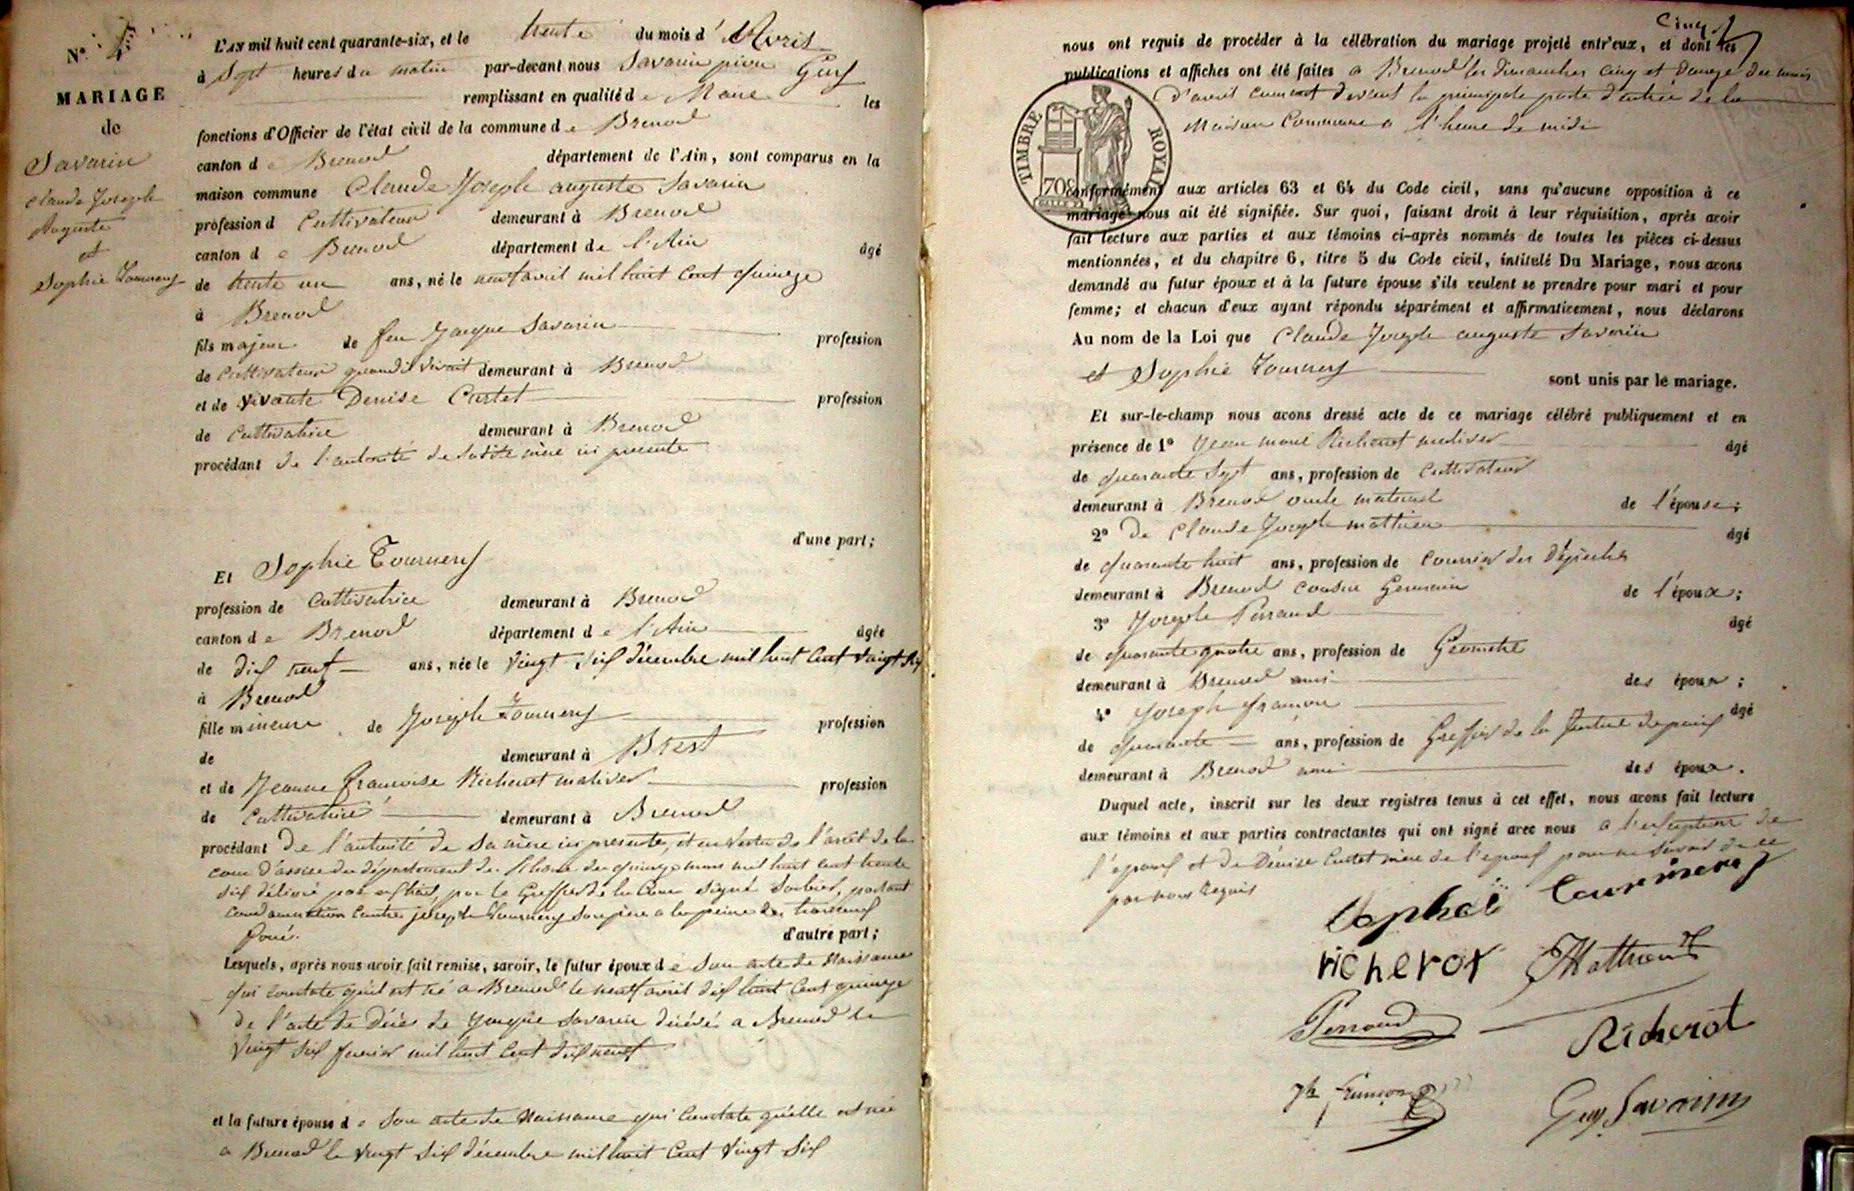 N° 4
MARIAGE
de
Savarin
Claude Joseph
Auguste
et
Sophie Tournery
L'AN mil huit cent quarante-six, et le trente du mois d'Avril
à Sept heures du matin par-devant nous Savarin Guy
remplissant en qualité de Maire les
fonctions d'Officier de l'état civil de la commune de Brenod
canton de Brenod département de l'Ain, sont comparus en la
maison commune Claude Joseph auguste Savarin
profession d Cultivateur demeurant à Brenod
canton de Brenod département de l'Ain âgé
de trente un ans, né le neuf avril mil huit cent quinze
à Brenod
fils majeur de feu Jacque Savarin profession
de Cultivateur quand il vivait demeurant à Brenod
et de vivante Denise Cartet profession
de Cultivatrice demeurant à Brenod
procédant de l'autorité de sadite mère ici présente
d'une part;
Et Sophie Tournery
profession de Cultivatrice demeurant à Brenod
canton de Brenod département de l'Ain âgée
de dix neuf ans, née le vingt six décembre mil huit cent vingt six
à Brenod
fille mineure de Joseph Tournery profession
de demeurant à Brest
et de Jeanne françoise Richerot maliver profession
de Cultivatrice demeurant à Brenod
procédant De l'autorité de sa mère ici presente, et en vertu de l'arrêt de la
cour d'assise du département du Rhône du quinze mars mil huit cent trente
six délivré par extrait, par le Greffier de la Cour signé portant
condamnation contre joseph Tournery son père a la peine des travaux
forcé. d'autre part;
Lesquels, après nous avoir fait remise, savoir, le futur époux de son acte de Naissance
qui constate qu'il est né a Brenod le neuf avril dix huit cent quinze
de l'acte de Décès de Jacque Savarin décédé a Brenod le
vingt six mil huit cent dix neuf
et la future épouse de son acte de Naissance qui Constate qu'elle est née
a Brenod le vingt six décembre mil huit cent vingt six
Cinq
nous ont requis de procéder à la célébration du mariage projeté entr'eux, et dont les
publications et affiches ont été faites a Brenod les dimanches cinq et douze du mois
d'avril courant devant la principale porte d'entrée de la
Maison Commune a l'heure de midi
TIMBRE ROYAL
70c
conformément aux articles 63 et 64 du Code civil, sans qu'aucune opposition à ce
mariage nous ait été signifiée. Sur quoi, faisant droit à leur réquisition, après avoir
fait lecture aux parties et aux témoins ci-après nommés de toutes les pièces ci-dessus
mentionnées, et du chapitre 6, titre 5 du Code civil, intitulé Du Mariage, nous avons
demandé au futur époux et à la future épouse s'ils veulent se prendre pour mari et pour
femme; et chacun d'eux ayant répondu séparément et affirmativement, nous déclarons
Au nom de la Loi que Claude Joseph auguste Savarin
et Sophie Tournery sont unis par le mariage.
Et sur-le-champ nous avons dressé acte de ce mariage célébré publiquement et en
présence de 1° Jean marie Richerot maliver âgé
de quarante sept ans, profession de Cultivateur
demeurant à Brenod oncle maternel de l'épouse;
2° de Claude Joseph mathieu âgé
de quarante huit ans, profession de Courrier des Dépêches
demeurant à Brenod cousin Germain de l'époux;
3° Joseph Perraud âgé
de quarante quatre ans, profession de Géomètre
demeurant à Brenod ami des époux;
4° Joseph françon âgé
de quarante ans, profession de Greffier de la Justice de paix
demeurant à Brenod ami des époux.
Duquel acte, inscrit sur les deux registres tenus à cet effet, nous avons fait lecture
aux témoins et aux parties contractantes qui ont signé avec nous a l'exception de
l'époux et de Dénise Cartet mère de l'époux pour ne savoir de ce
par nous Requis
Sophie Tournery
richerot JMathieu
Perraud
Richerot
Jh françon
Guy Savarin